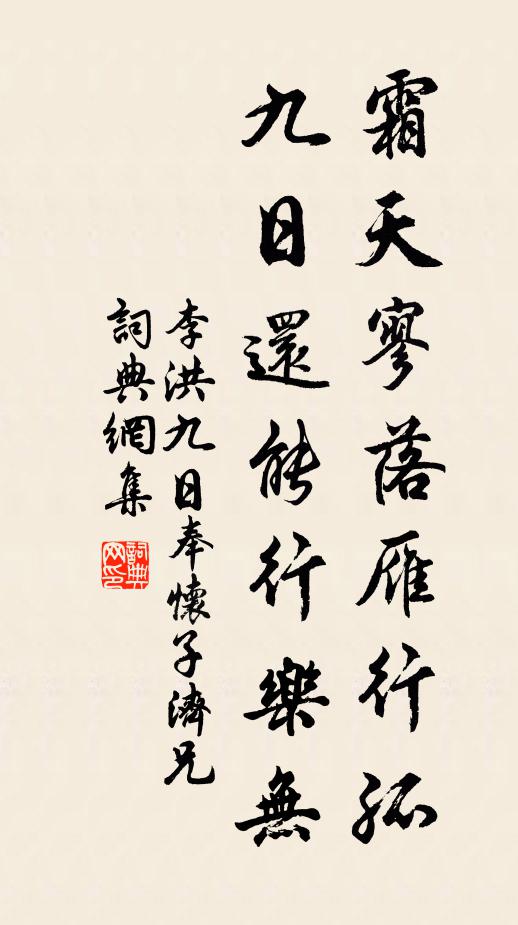 霜天寥落雁行孤
九日還能行樂無
李洪九日奉懷子濟兄
詞典網集
詞典網印